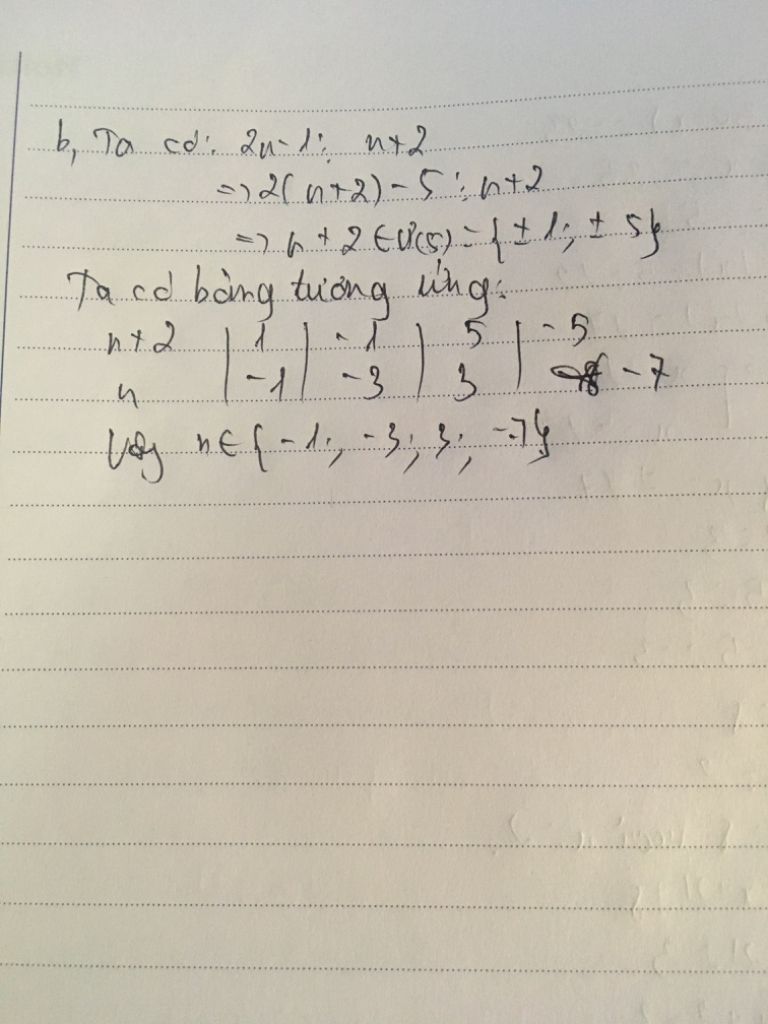 b, Ta có: 2n-1 ⋮ n+2
=> 2(n+2) - 5 ⋮ n+2
=> n + 2 ∈ Ư(5) = { ± 1; ± 5}
Ta có bảng tương ứng:
n+2 | 1 | -1 | 5 | -5
n | -1 | -3 | 3 | -7
Vậy n ∈ { -1; -3; 3; -7}